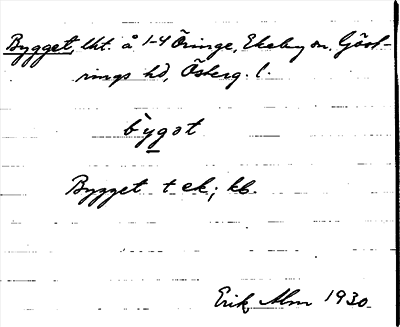 Bygget, lht. å 1-4 Öringe, Ekeby sn. Göst-
rings hd, Österg. l.
bygət
Bygget t ek; kb.
Erik Alm 1930.